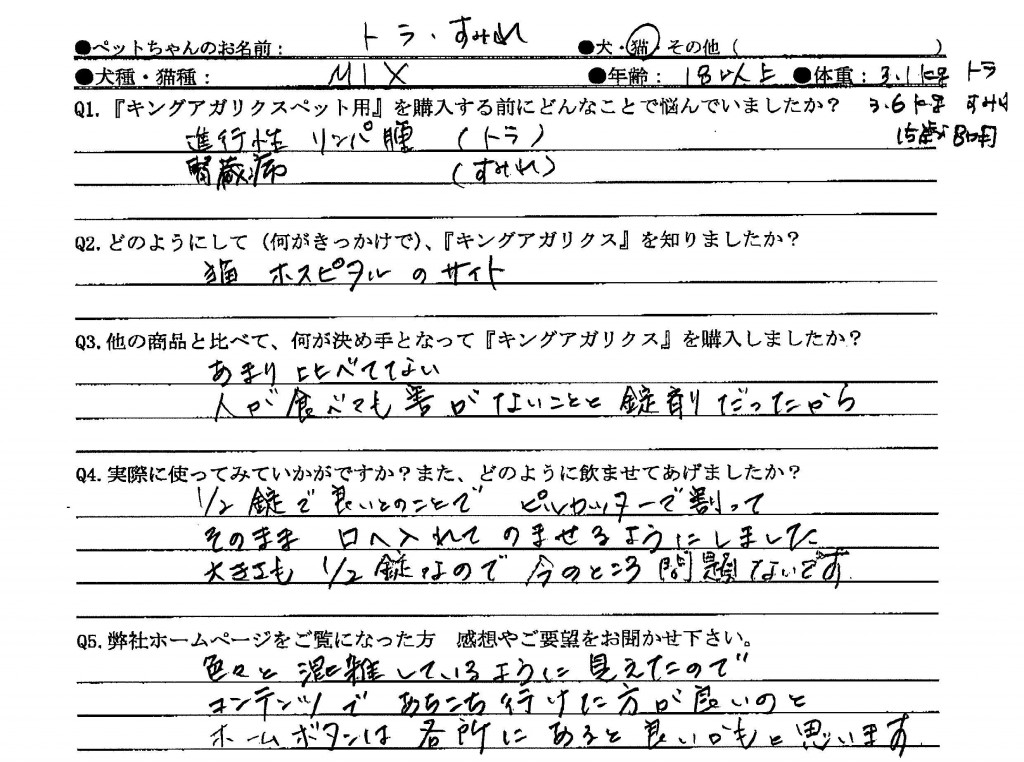 ●ペットちゃんのお名前： トラ・すみれ ●犬・猫・その他（ ）
●犬種・猫種： MIX ●年齢： 18以上 ●体重：3.1kg トラ
3.6kg すみれ
Q1.『キングアガリクスペット用』を購入する前にどんなことで悩んでいましたか？
15歳
進行性 リンパ腫 （トラ）
腎臓病 （すみれ）
Q2.どのようにして（何がきっかけで）、『キングアガリクス』を知りましたか？
猫 ホスピタル の サイト
Q3.他の商品と比べて、何が決め手となって『キングアガリクス』を購入しましたか？
あまり 比べててない
人が食べても害がないことと錠剤だったから
Q4.実際に使ってみていかがですか？また、どのように飲ませてあげましたか？
1/2錠で良いとのことで ピルカッターで割って
そのまま 口へ入れて のませるようにしました
大きさも 1/2錠なので 今のところ問題ないです
Q5.弊社ホームページをご覧になった方 感想やご要望をお聞かせ下さい。
色々と混雑しているように見えたので
コンテンツで あちこち行けた方が良いのと
ホームボタンは 各所に あると良いかもと思います